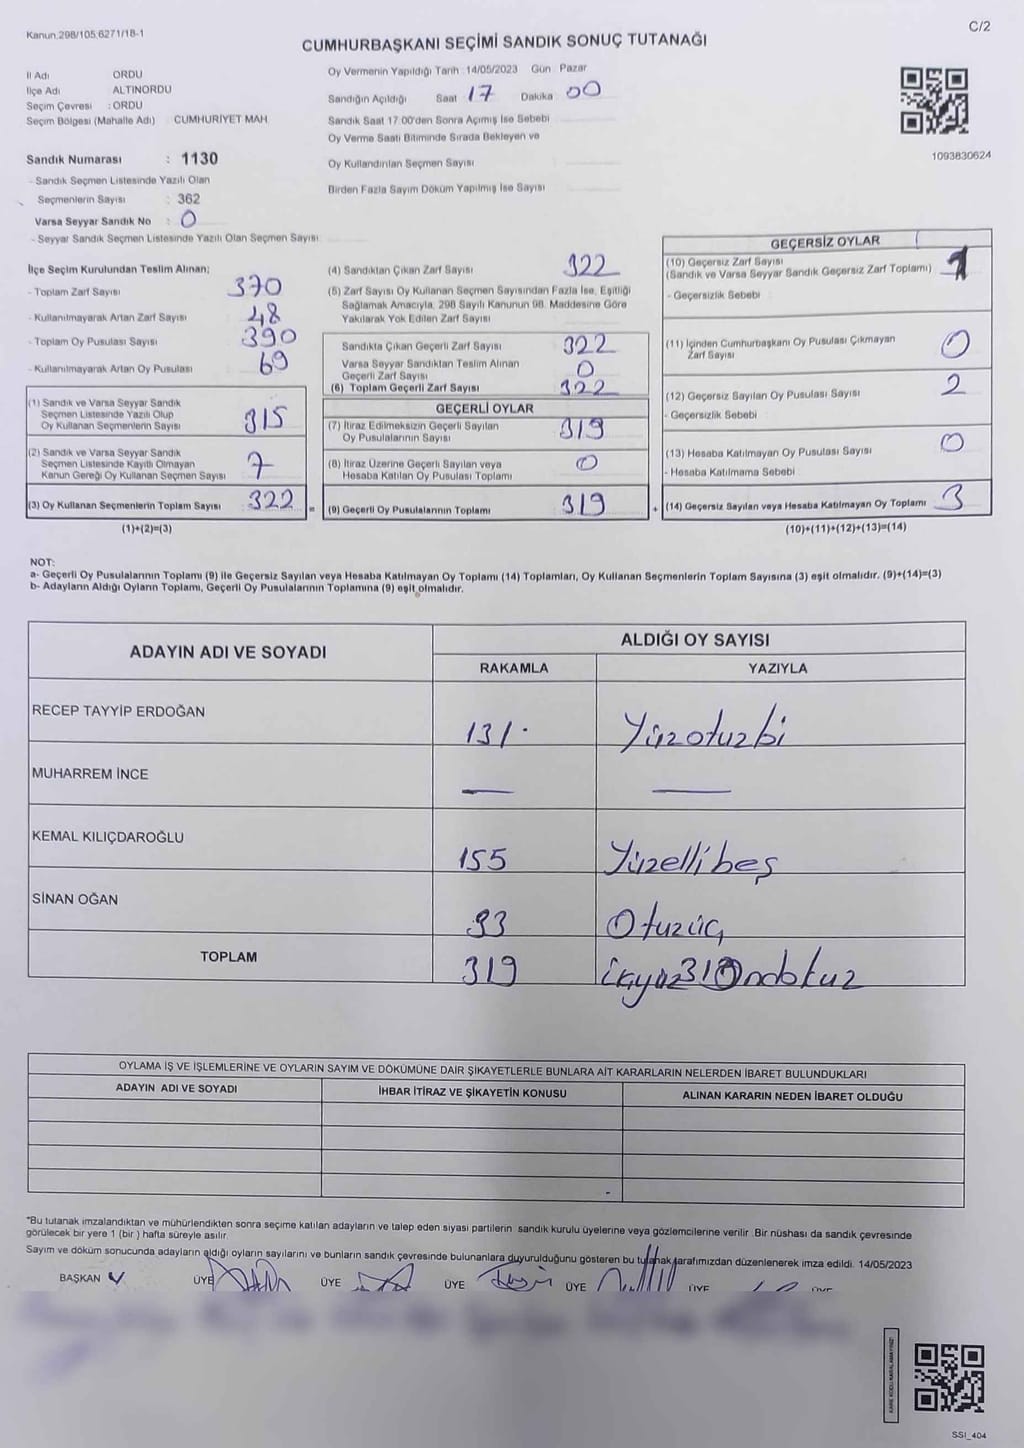 Kanun.298/105.6271/18-1
C/2
CUMHURBAŞKANI SEÇİMİ SANDIK SONUÇ TUTANAĞI
İl Adı ORDU
İlçe Adı ALTINORDU
Seçim Çevresi : ORDU
Seçim Bölgesi (Mahalle Adı) CUMHURİYET MAH.
Sandık Numarası : 1130
- Sandık Seçmen Listesinde Yazılı Olan
Seçmenlerin Sayısı : 362
Varsa Seyyar Sandık No : 0
- Seyyar Sandık Seçmen Listesinde Yazılı Olan Seçmen Sayısı:
Oy Vermenin Yapıldığı Tarih :14/05/2023 Gün : Pazar
Sandığın Açıldığı Saat 17 Dakika 00
Sandık Saat 17.00'den Sonra Açımış İse Sebebi
Oy Verme Saati Bitiminde Sırada Bekleyen ve
Oy Kullandırılan Seçmen Sayısı
Birden Fazla Sayım Döküm Yapılmış İse Sayısı
1093830624
İlçe Seçim Kurulundan Teslim Alınan;
- Toplam Zarf Sayısı 370
- Kullanılmayarak Artan Zarf Sayısı 48
- Toplam Oy Pusulası Sayısı 390
- Kullanılmayarak Artan Oy Pusulası 69
(1) Sandık ve Varsa Seyyar Sandık
Seçmen Listesinde Yazılı Olup
Oy Kullanan Seçmenlerin Sayısı 315
(2) Sandık ve Varsa Seyyar Sandık
Seçmen Listesinde Kayıtlı Olmayan
Kanun Gereği Oy Kullanan Seçmen Sayısı 7
(3) Oy Kullanan Seçmenlerin Toplam Sayısı 322 =
(1)+(2)=(3)
(4) Sandıktan Çıkan Zarf Sayısı 322
(5) Zarf Sayısı Oy Kullanan Seçmen Sayısından Fazla İse, Eşitliği
Sağlamak Amacıyla, 298 Sayılı Kanunun 98. Maddesine Göre
Yakılarak Yok Edilen Zarf Sayısı
Sandıkta Çıkan Geçerli Zarf Sayısı 322
Varsa Seyyar Sandıktan Teslim Alınan
Geçerli Zarf Sayısı 0
(6) Toplam Geçerli Zarf Sayısı 322
GEÇERLİ OYLAR
(7) İtiraz Edilmeksizin Geçerli Sayılan
Oy Pusulalarının Sayısı 319
(8) İtiraz Üzerine Geçerli Sayılan veya
Hesaba Katılan Oy Pusulası Toplamı 0
(9) Geçerli Oy Pusulalarının Toplamı 319 +
GEÇERSİZ OYLAR
(10) Geçersiz Zarf Sayısı
(Sandık ve Varsa Seyyar Sandık Geçersiz Zarf Toplamı) 1
- Geçersizlik Sebebi
(11) İçinden Cumhurbaşkanı Oy Pusulası Çıkmayan
Zarf Sayısı 0
(12) Geçersiz Sayılan Oy Pusulası Sayısı 2
- Geçersizlik Sebebi
(13) Hesaba Katılmayan Oy Pusulası Sayısı 0
- Hesaba Katılmama Sebebi
(14) Geçersiz Sayılan veya Hesaba Katılmayan Oy Toplamı 3
(10)+(11)+(12)+(13)=(14)
NOT:
a- Geçerli Oy Pusulalarının Toplamı (9) ile Geçersiz Sayılan veya Hesaba Katılmayan Oy Toplamı (14) Toplamları, Oy Kullanan Seçmenlerin Toplam Sayısına (3) eşit olmalıdır. (9)+(14)=(3)
b- Adayların Aldığı Oyların Toplamı, Geçerli Oy Pusulalarının Toplamına (9) eşit olmalıdır.
ADAYIN ADI VE SOYADI ALDIĞI OY SAYISI
RAKAMLA YAZIYLA
RECEP TAYYİP ERDOĞAN 131 Yüzotuzbi
MUHARREM İNCE — —
KEMAL KILIÇDAROĞLU 155 Yüzellibeş
SİNAN OĞAN 33 Otuzüç
TOPLAM 319 319 Ondokuz
OYLAMA İŞ VE İŞLEMLERİNE VE OYLARIN SAYIM VE DÖKÜMÜNE DAİR ŞİKAYETLERLE BUNLARA AİT KARARLARIN NELERDEN İBARET BULUNDUKLARI
ADAYIN ADI VE SOYADI İHBAR İTİRAZ VE ŞİKAYETİN KONUSU ALINAN KARARIN NEDEN İBARET OLDUĞU
*Bu tutanak imzalandıktan ve mühürlendikten sonra seçime katılan adayların ve talep eden siyasi partilerin sandık kurulu üyelerine veya gözlemcilerine verilir. Bir nüshası da sandık çevresinde
görülecek bir yere 1 (bir ) hafta süreyle asılır.
Sayım ve döküm sonucunda adayların aldığı oyların sayılarını ve bunların sandık çevresinde bulunanlara duyurulduğunu gösteren bu tutanak tarafımızdan düzenlenerek imza edildi. 14/05/2023
BAŞKAN ÜYE ÜYE ÜYE ÜYE ÜYE ÜYE
SSI_404